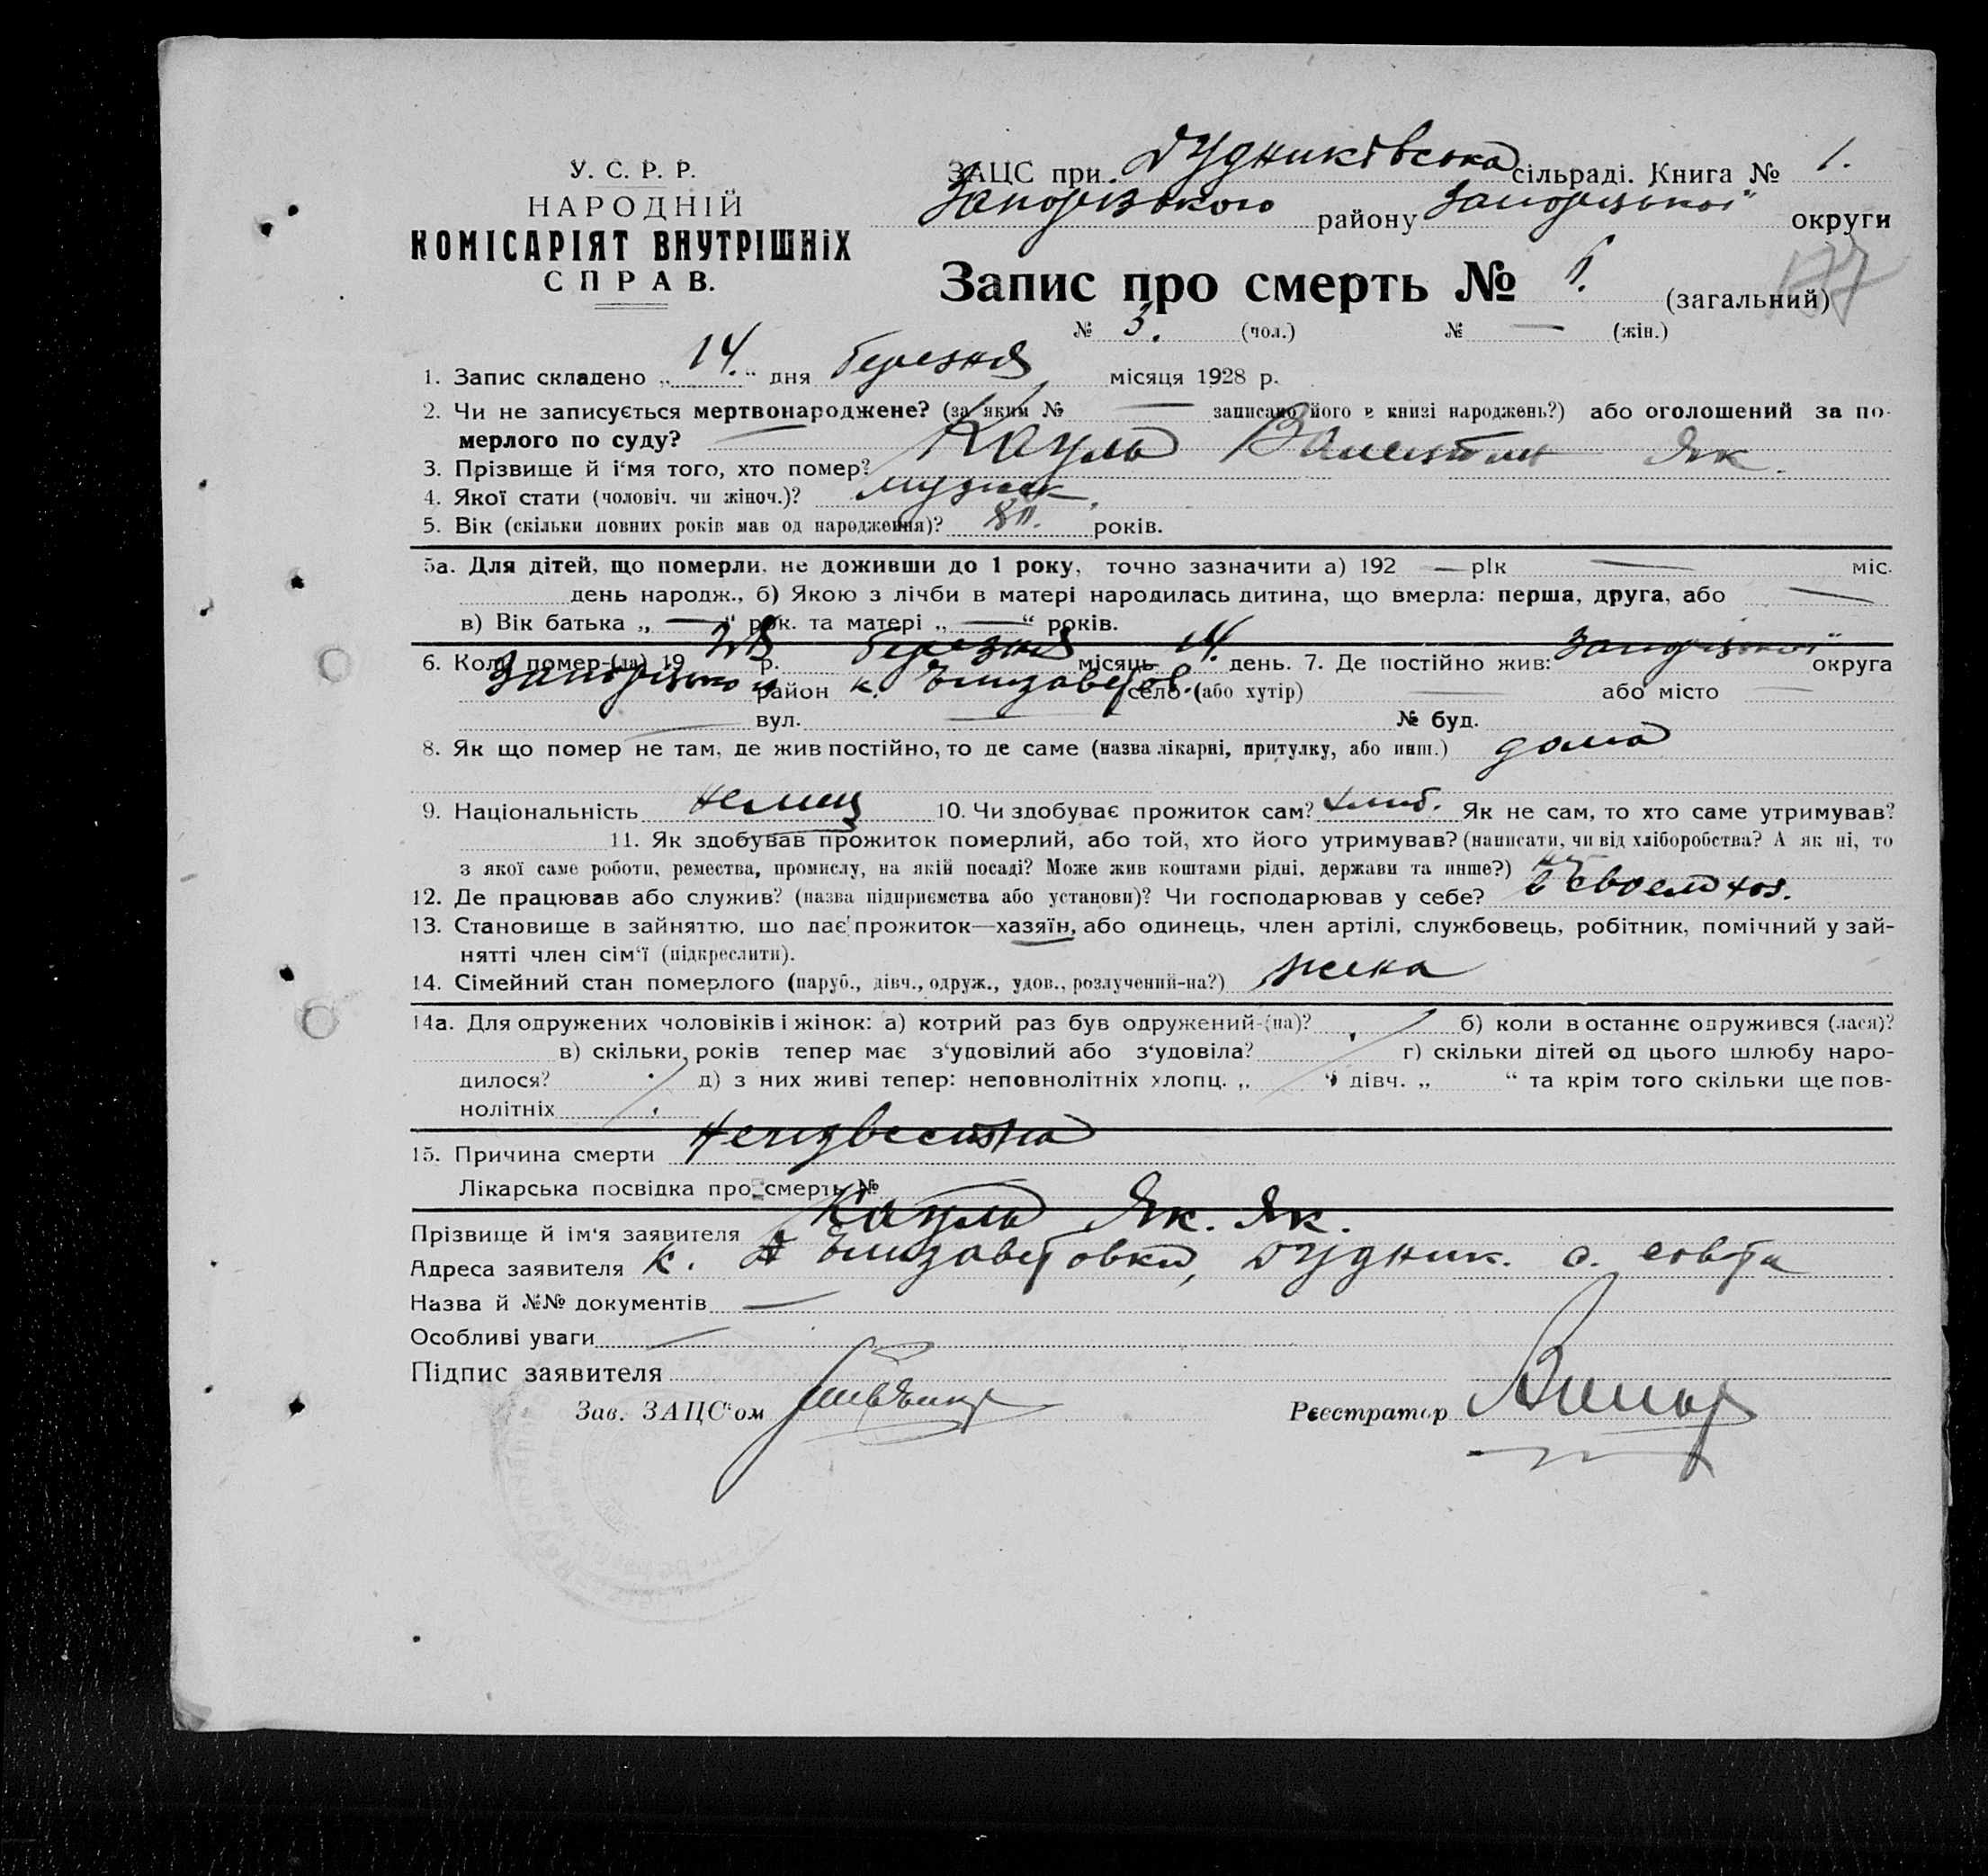 У. С. Р. Р.
НАРОДНІЙ
КОМІСАРІЯТ ВНУТРІШНІХ
СПРАВ.
ЗАЦС при Дудниківська сільраді. Книга № 1.
Запорізького району Запорізької округи
177
Запис про смерть № 6. (загальний)
№ 3. (чол.) № — (жін.)
1. Запис складено „14.“ дня березня місяця 1928 р.
2. Чи не записується мертвонароджене? (за яким № — записано його в книзі народжень?) або оголошений за по-
мерлого по суду? —
3. Прізвище й і‘мя того, хто помер? Кауль Валентин Як.
4. Якої стати (чоловіч. чи жіноч.)? мужск.
5. Вік (скільки повних років мав од народження)? років.
5а. Для дітей, що померли, не доживши до 1 року, точно зазначити а) 192 — рік — міс.
день народж., б) Якою з лічби в матері народилась дитина, що вмерла: перша, друга, або —
в) Вік батька „—“ рок. та матері „—“ років.
6. Коли помер-(ла) 19 28 р. березня місяць 14. день. 7. Де постійно жив: Запорізької округа
район к. Елизаветов. село (або хутір) — або місто —
— вул. — № буд.
8. Як що помер не там, де жив постійно, то де саме (назва лікарні, притулку, або инш.) дома
9. Національність немец 10. Чи здобуває прожиток сам? хлиб. Як не сам, то хто саме утримував?
11. Як здобував прожиток померлий, або той, хто його утримував? (написати, чи від хліборобства? А як ні, то
з якої саме роботи, ремества, промислу, на якій посаді? Може жив коштами рідні, держави та инше?)
12. Де працював або служив? (назва підприємства або установи)? Чи господарював у себе? в своем хоз.
13. Становище в зайняттю, що дає прожиток—хазяїн, або одинець, член артілі, службовець, робітник, помічний у зай-
нятті член сім‘ї (підкреслити).
14. Сімейний стан померлого (паруб., дівч., одруж., удов., розлучений-на?) жена
14а. Для одружених чоловіків і жінок: а) котрий раз був одружений-(на)? б) коли в останнє одружився (лася)?
в) скільки років тепер має з‘удовілий або з‘удовіла? г) скільки дітей од цього шлюбу наро-
дилося? д) з них живі тепер: неповнолітніх хлопц. „ “ дівч. „ “ та крім того скільки ще пов-
нолітніх
15. Причина смерти неизвестна
Лікарська посвідка про смерть №
Прізвище й ім‘я заявителя Кауль Як. Як.
Адреса заявителя к. Елизаветовка, Дудник. с. совета
Назва й №№ документів —
Особливі уваги —
Підпис заявителя
Зав. ЗАЦС‘ом
Реєстратор